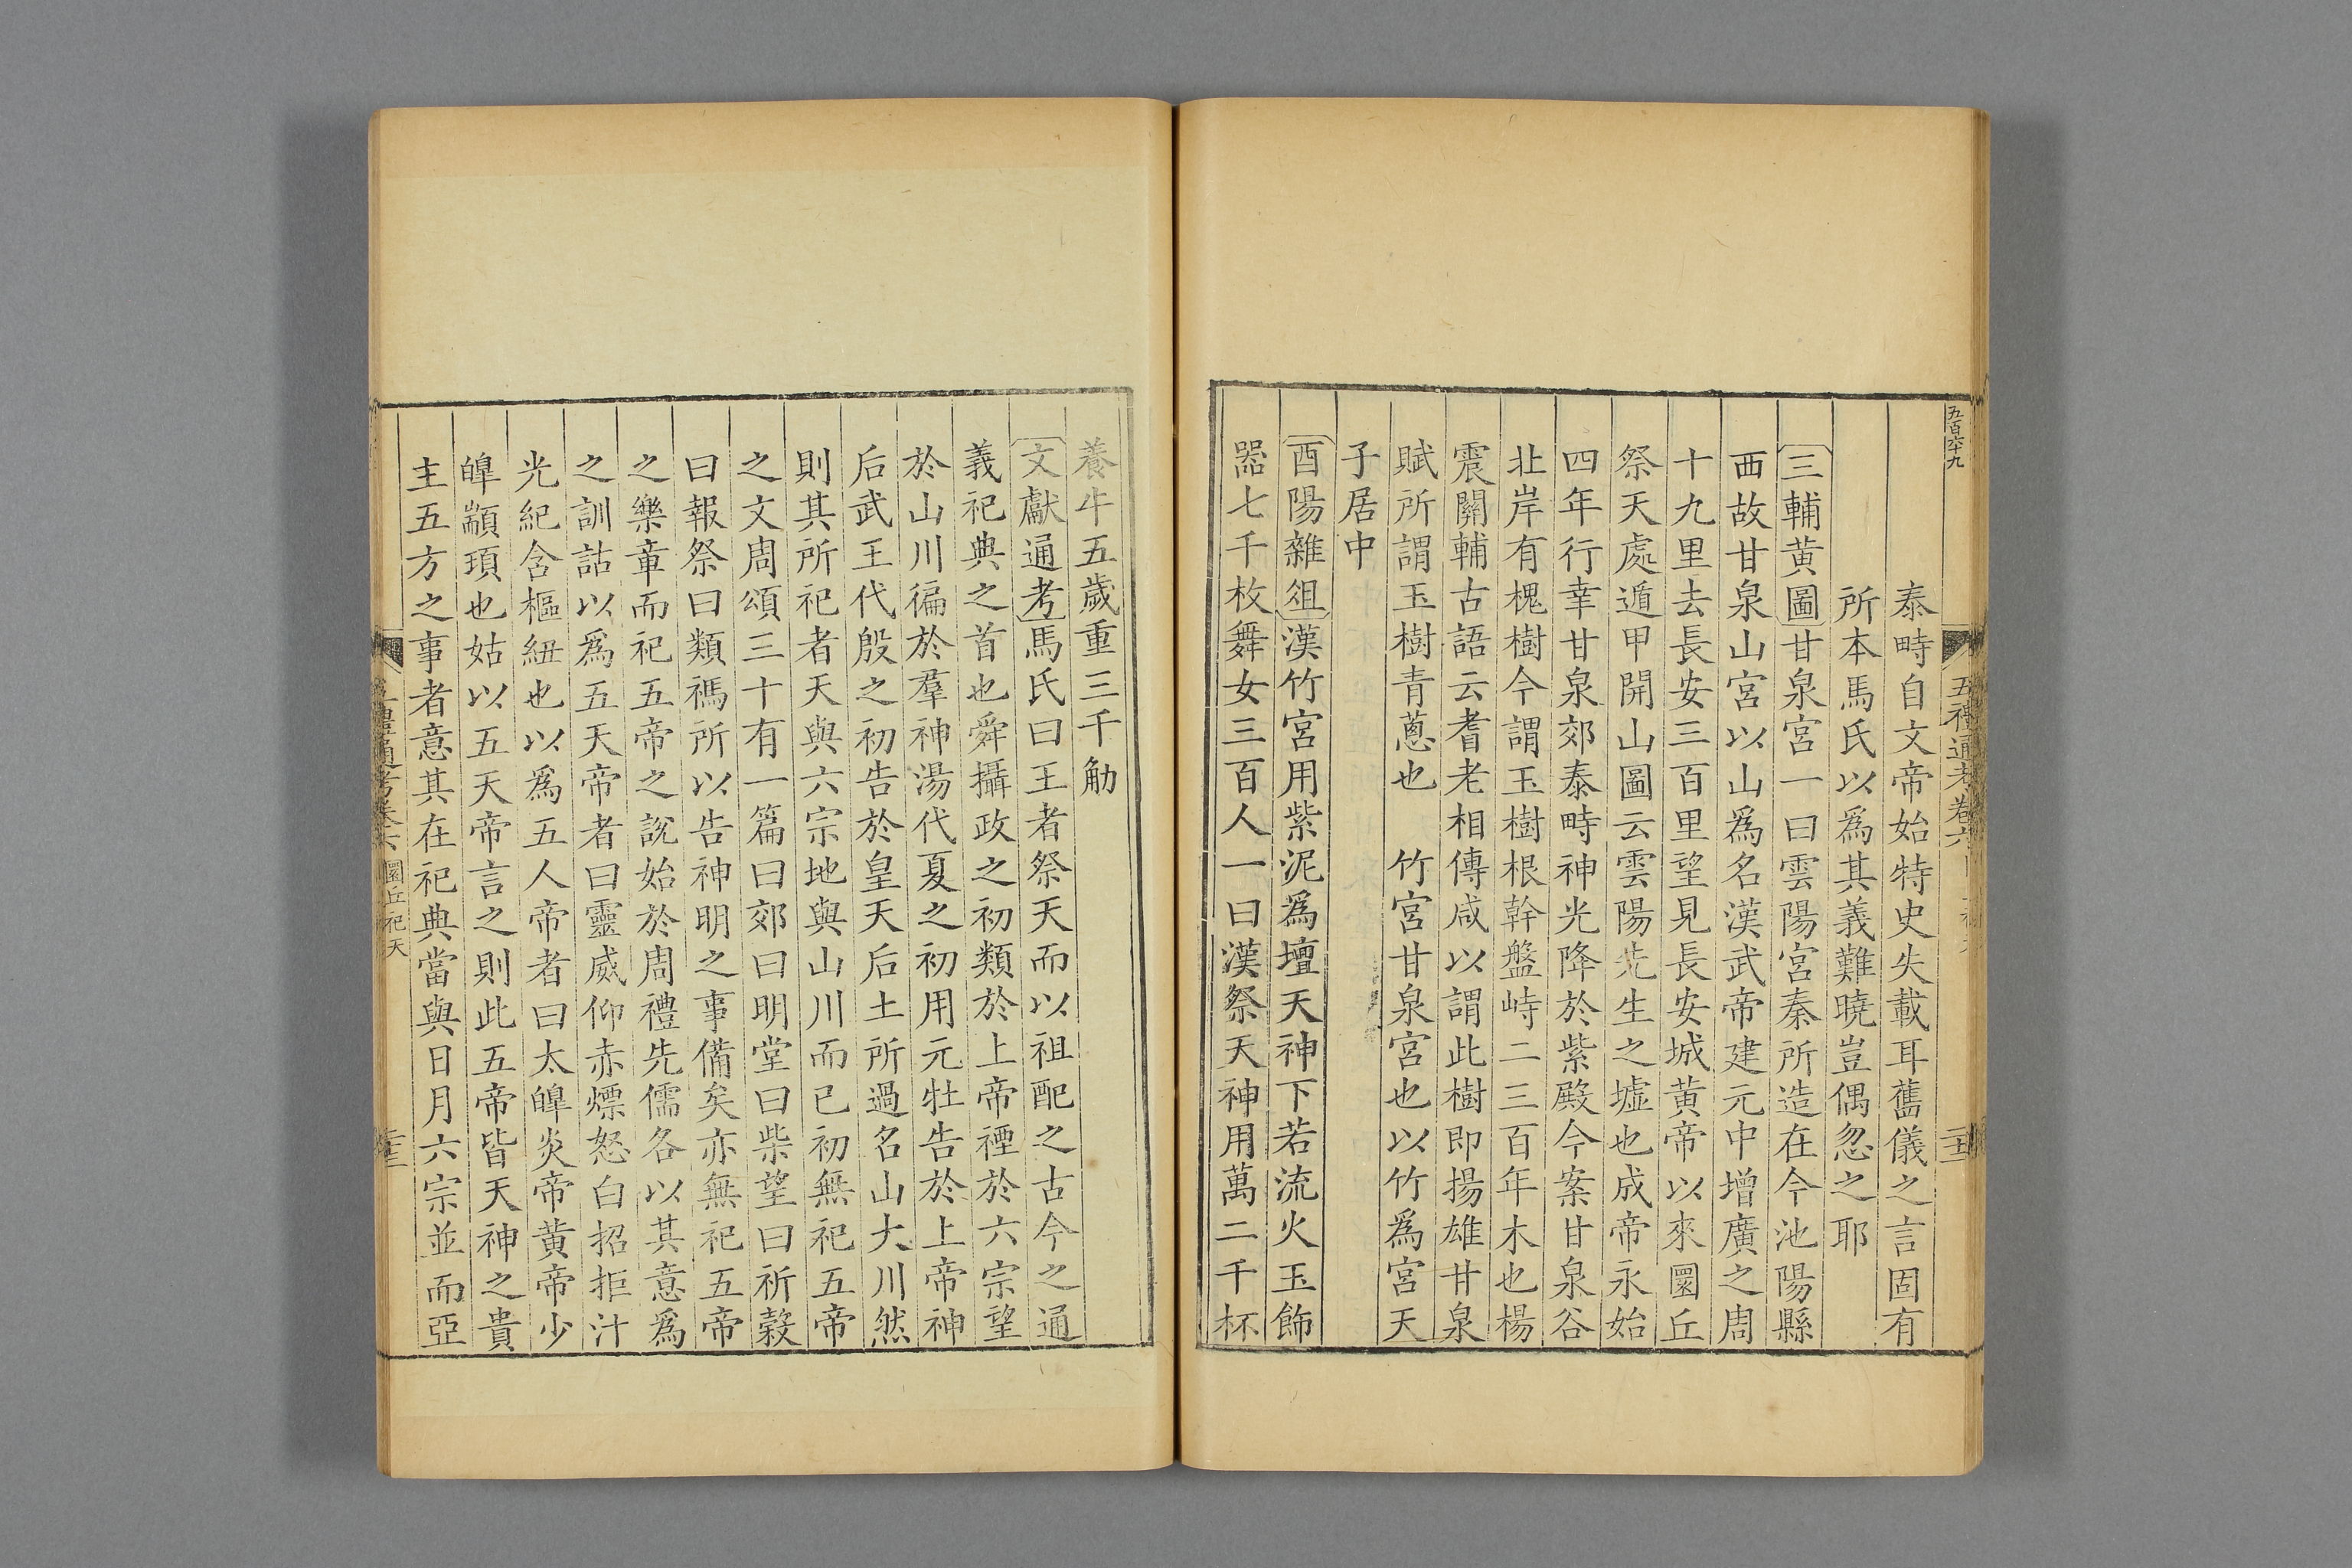 五百六十九
五禮通考卷六
泰畤自文帝始特史失載耳舊儀之言固有
所本馬氏以爲其義難曉豈偶忽之耶
三輔黃圖甘泉宮一曰雲陽宮秦所造在今池陽縣
西故甘泉山宮以山爲名漢武帝建元中增廣之周
十九里去長安三百里望見長安城黃帝以來圜丘
祭天處遁甲開山圖云雲陽先生之墟也成帝永始
四年行幸甘泉郊泰畤神光降於紫殿今案甘泉谷
北岸有槐樹今謂玉樹根幹盤峙二三百年木也楊
震關輔古語云耆老相傳咸以謂此樹即揚雄甘泉
賦所謂玉樹青蔥也　竹宮甘泉宮也以竹爲宮天
子居中
酉陽雜俎漢竹宮用紫泥爲壇天神下若流火玉飾
器七千枚舞女三百人一曰漢祭天神用萬二千杯
養牛五歲重三千觔
文獻通考馬氏曰王者祭天而以祖配之古今之通
義祀典之首也舜攝政之初類於上帝禋於六宗望
於山川徧於羣神湯代夏之初用元牡告於上帝神
后武王代殷之初告於皇天后土所過名山大川然
則其所祀者天與六宗地與山川而已初無祀五帝
之文周頌三十有一篇曰郊曰明堂曰柴望曰祈穀
曰報祭曰類禡所以告神明之事備矣亦無祀五帝
之樂章而祀五帝之說始於周禮先儒各以其意爲
之訓詁以爲五天帝者曰靈威仰赤熛怒白招拒汁
光紀含樞紐也以爲五人帝者曰太皥炎帝黃帝少
皥顓頊也姑以五天帝言之則此五帝皆天神之貴
主五方之事者意其在祀典當與日月六宗並而亞
禮通考卷六 圜丘祀天